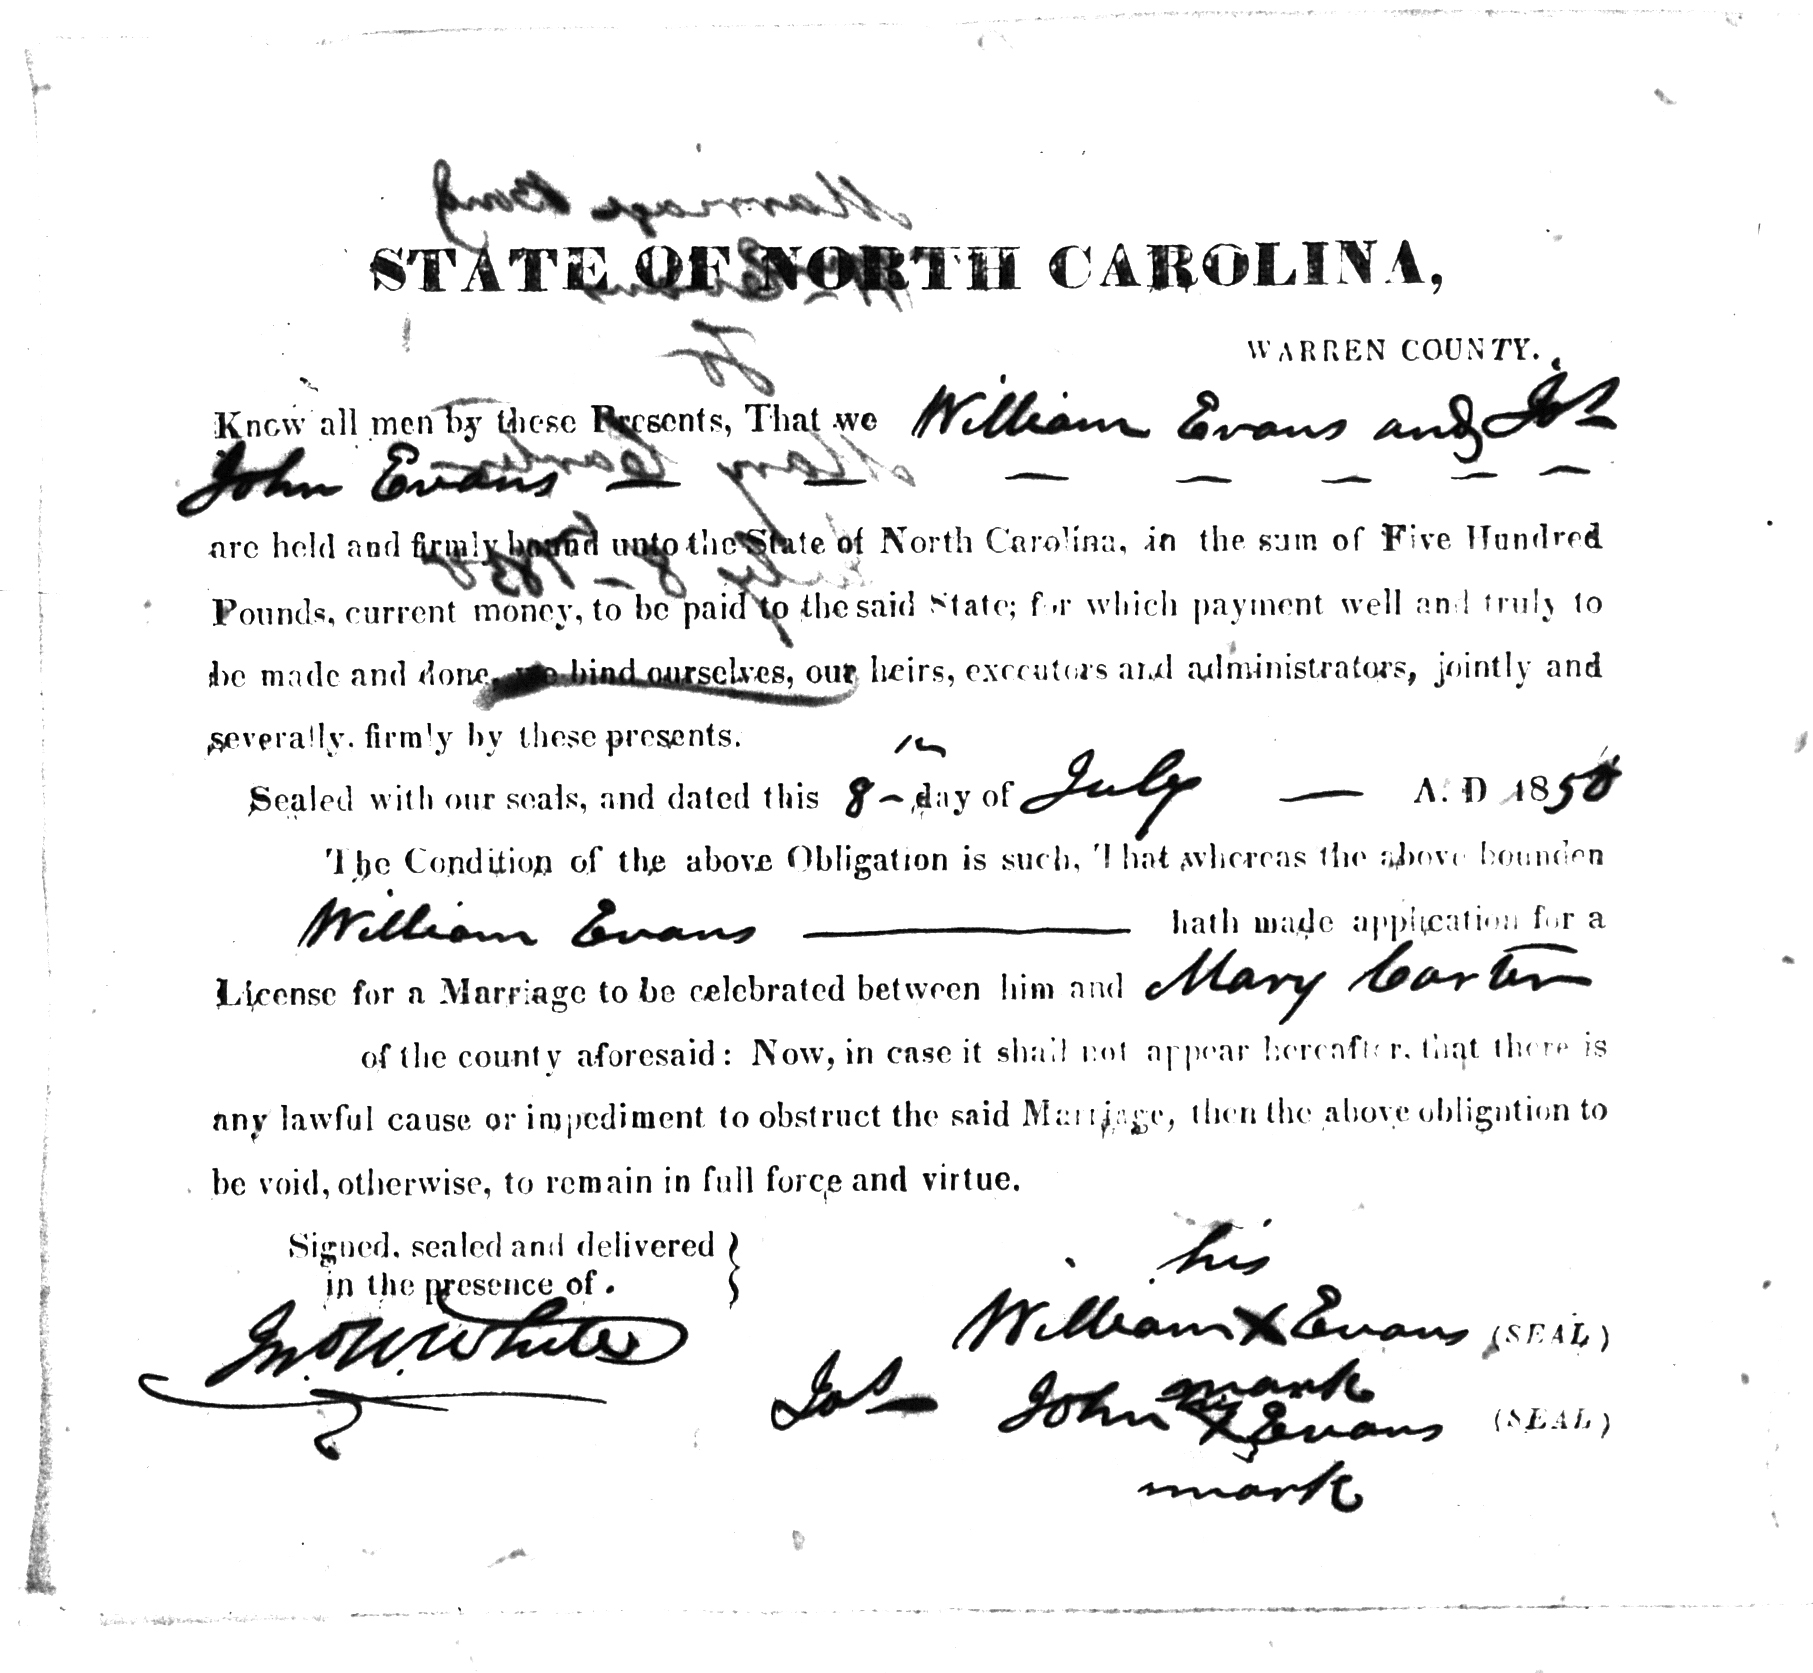 Marriage Bond
STATE OF NORTH CAROLINA,
To
WARREN COUNTY.
Know all men by these Presents, That we William Evans and Jos
John Evans — — — — — — —
Mary Carter
are held and firmly bound unto the State of North Carolina, in the sum of Five Hundred
July 8 – 1850
Pounds, current money, to be paid to the said State; for which payment well and truly to
be made and done, we bind ourselves, our heirs, executors and administrators, jointly and
severally, firmly by these presents.
Sealed with our seals, and dated this 8th day of July — A. D 1850
The Condition of the above Obligation is such, That whereas the above bounden
William Evans ——— hath made application for a
License for a Marriage to be celebrated between him and Mary Carter
of the county aforesaid: Now, in case it shall not appear hereafter, that there is
any lawful cause or impediment to obstruct the said Marriage, then the above obligation to
be void, otherwise, to remain in full force and virtue.
Signed, sealed and delivered }
in the presence of.
his
Jno W. White
William X Evans (SEAL)
mark
Jos – John X Evans (SEAL)
mark